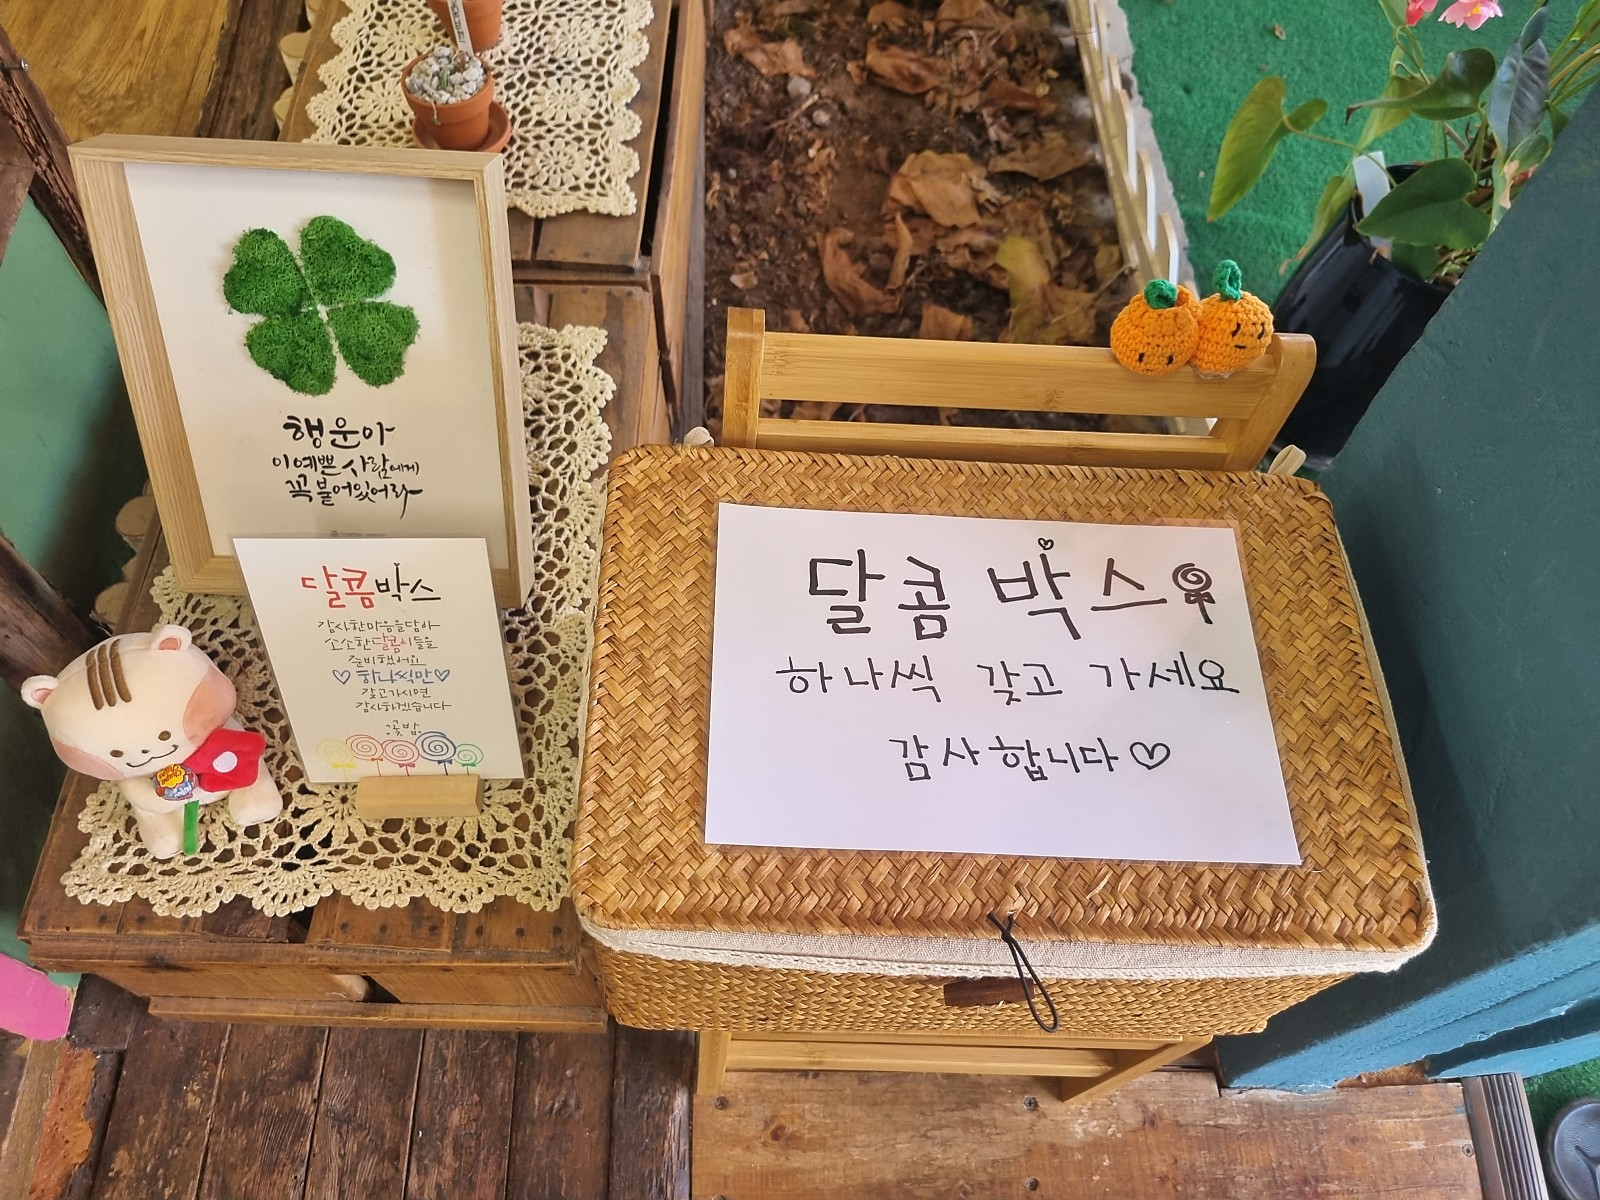 행운아
이예쁜 사람에게
꼭 붙어있어라
달콤박스
감사한마음을담아
소소한달콤이들을
준비했어요
♡ 하나씩만 ♡
갖고가시면
감사하겠습니다
꽃밤
달콤 박스
하나씩 갖고 가세요
감사합니다 ♡
Chupa
Chups